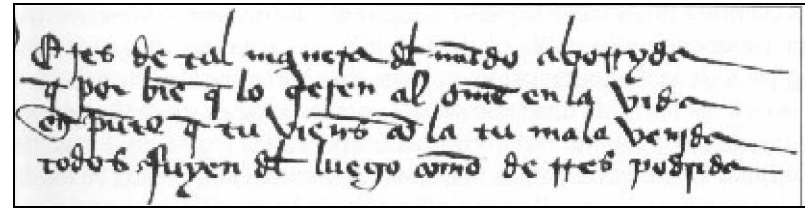 Eres de tal manera dl mūdo aborryda
q̄ por biē q̄ lo q̇eren al om̄e en la vida
en pūto q̄ tu vienes cō la tu mala venida
todos fuyen dl luego com̄o de rres podrida